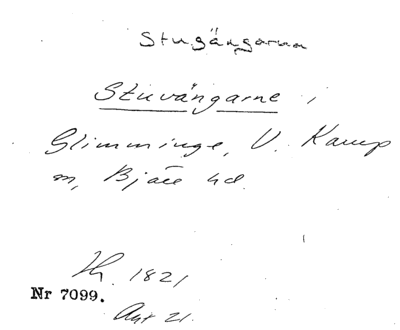 Stugängarna
Stuvängarne i
Glimminge, V. Karup
sn, Bjäre hd.
1821
Nr 7099.
Akt 21.